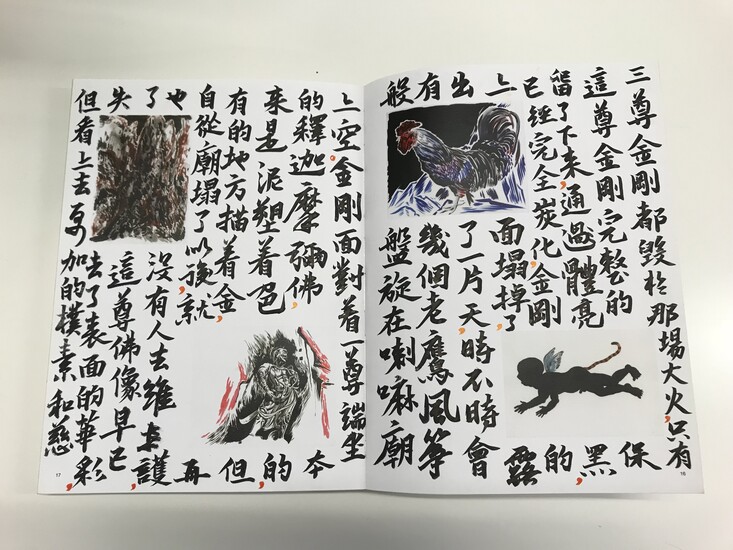 三尊金剛都毀於那場大火,只有
這尊金剛完整的保
留了下來,通過體亮黑
已經完全炭化,金剛的
上面塌掉了,露
出了一片天,時不時會
有幾個老鷹風箏
般盤旋在喇嘛廟
上空。金剛面對着一尊端坐
的釋迦摩彌佛,本
來是泥塑着色的,
有的地方描着金,但
自從廟塌了以後,就再
也沒有人去維護,
了這尊佛像早已
失去了表面的華彩,
但看上去更加的樸素和慈
16
17